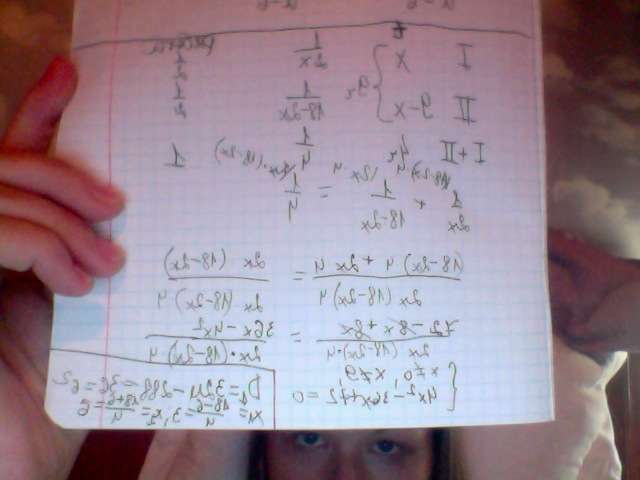 t
I x 1/2x 1/2
9ч
II 9-x 1/18-2x 1/2
I+II 4ч 1/4 1
1/2x + 1/18-2x = 1/4
(18-2x) 4 + 2x 4 / 2x (18-2x) 4 = 2x (18-2x) / 2x (18-2x) 4
72 - 8x + 8x / 2x (18-2x) 4 = 36x - 4x² / 2x·(18-2x) 4
x≠0, x≠9
4x² - 36x + 72 = 0
D₁ = 324 - 288 = 36 = 6²
x₁ = 18-6/4 = 3, x₂ = 18+6/4 = 6